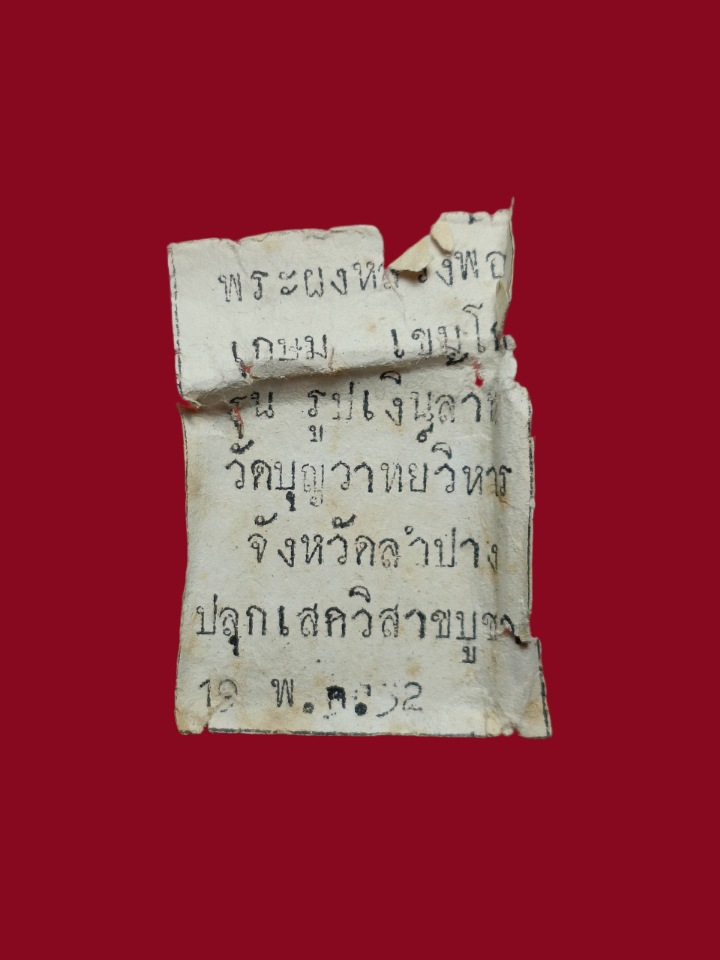 พระผงหลวงพ่อ
เกษม เขมโก
รุ่น รูปเงินลาน
วัดบุญวาทย์วิหาร
จังหวัดลำปาง
ปลุกเสควิสาขบูชา
19 พ.ค.32